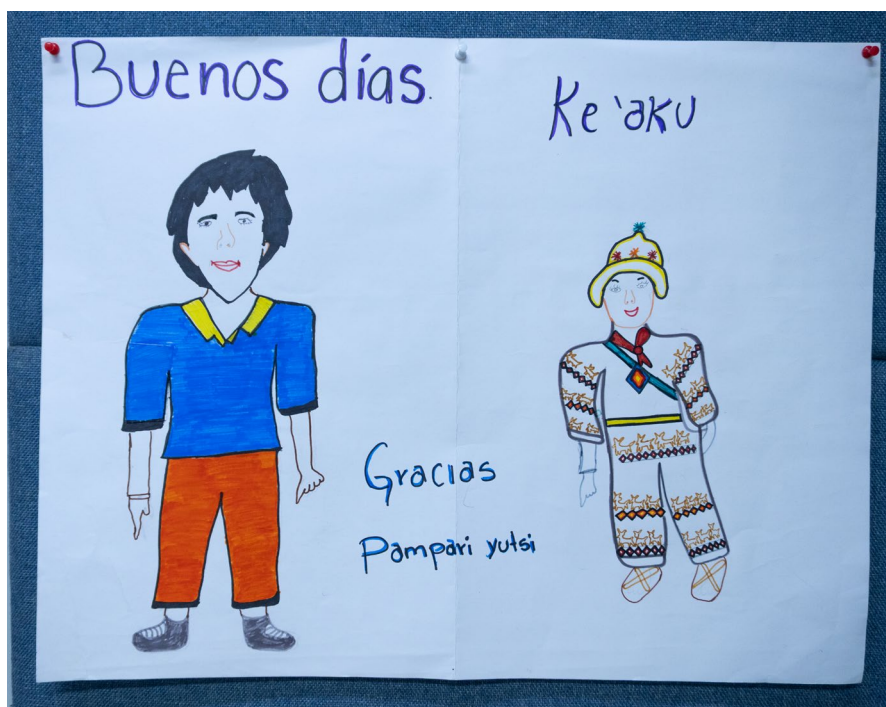 Buenos días.
Ke 'aku
Gracias
Pampari yutsi